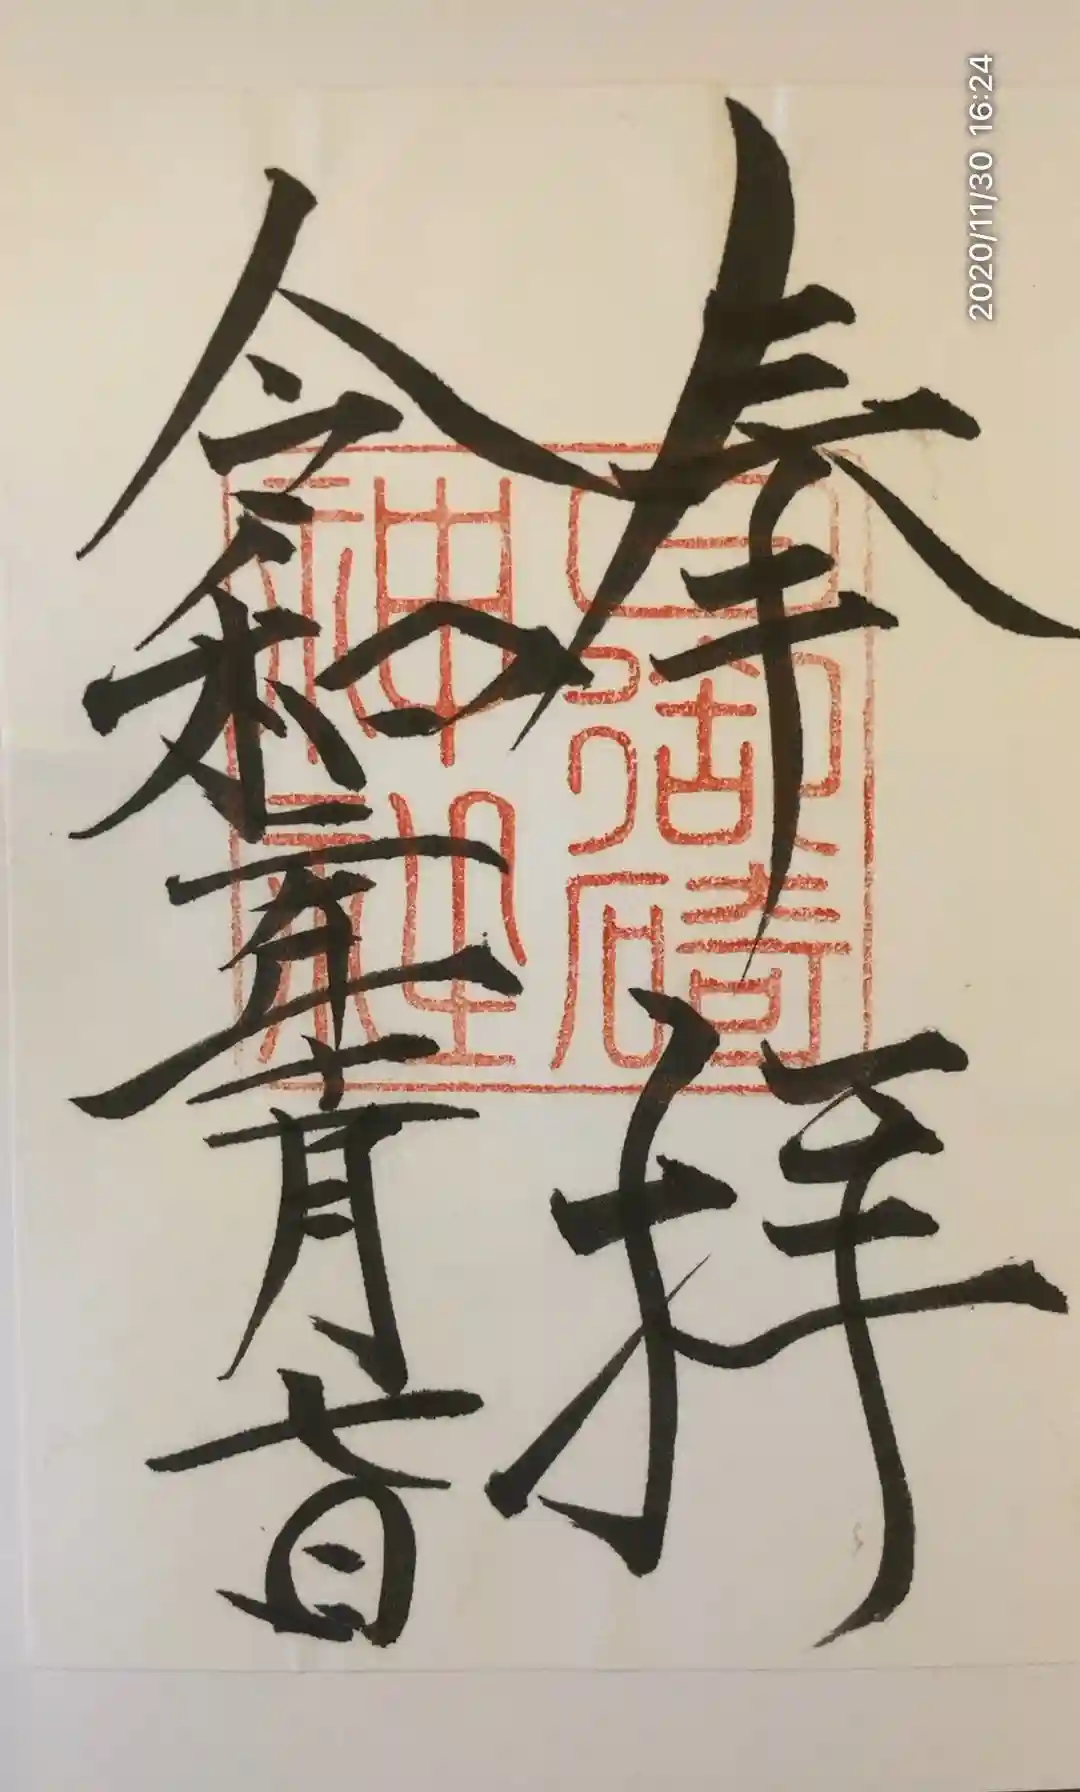 2020/11/30 16:24
奉拝
日御碕
神社
令和二年十一月七日